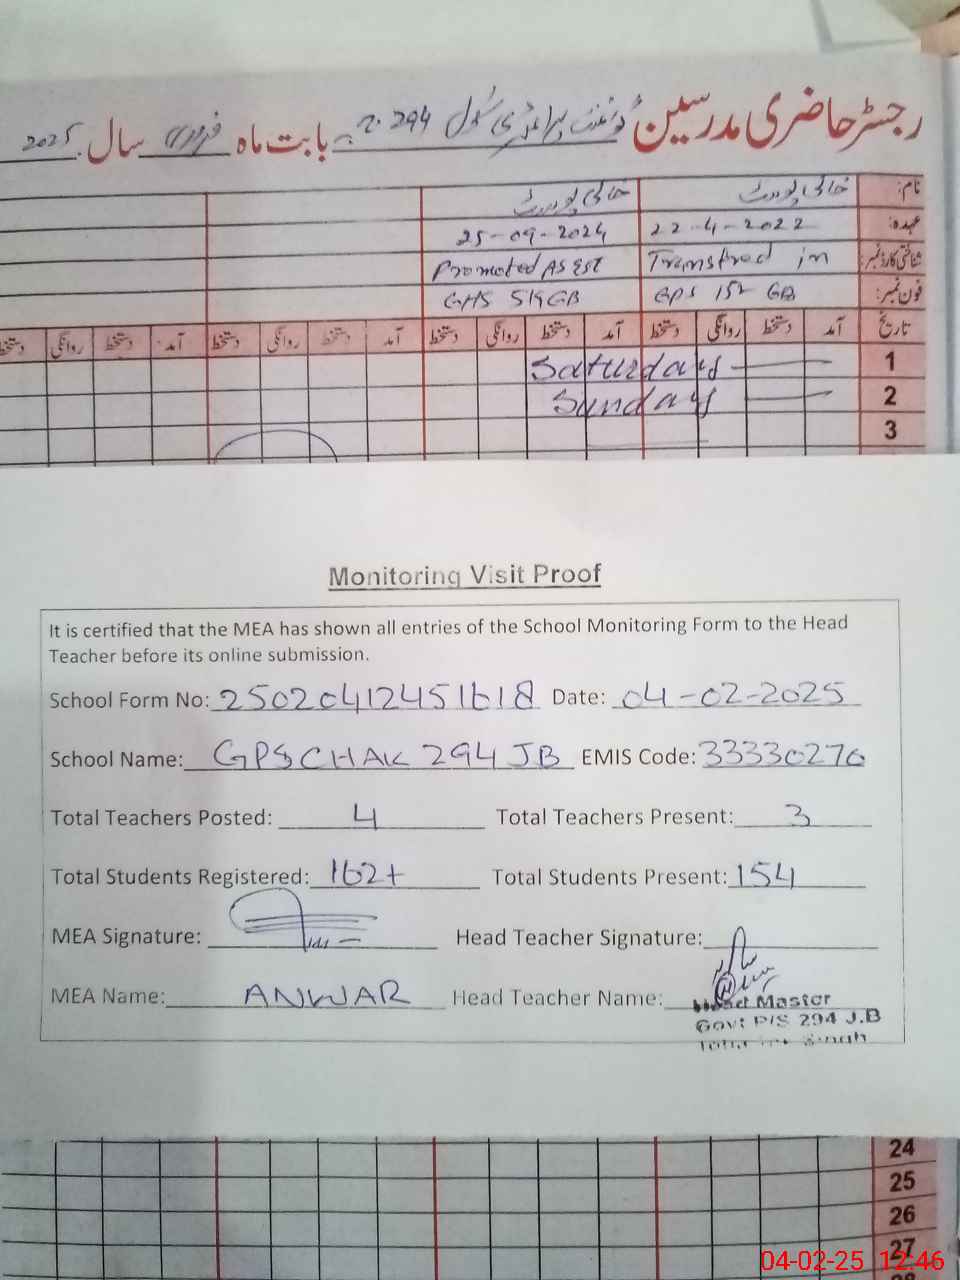 رجسٹر حاضری مدرسین گورنمنٹ پرائمری سکول 294 ج ب بابت ماہ فروری سال 2025
نام: خالی پوسٹ خالی پوسٹ
عہدہ: 22-4-2022 25-09-2024
شناختی کارڈ نمبر: Transfred in Promoted AS EST
فون نمبر: GPS 152 GB GHS 519GB
تاریخ آمد دستخط روانگی دستخط آمد دستخط روانگی دستخط آمد دستخط روانگی دستخط آمد دستخط روانگی دستخط
1 Saturday
2 Sunday
3
Monitoring Visit Proof
It is certified that the MEA has shown all entries of the School Monitoring Form to the Head
Teacher before its online submission.
School Form No: 25020412451618 Date: 04-02-2025
School Name: GPS CHAK 294 JB EMIS Code: 33330270
Total Teachers Posted: 4 Total Teachers Present: 3
Total Students Registered: 162+ Total Students Present: 154
MEA Signature: Head Teacher Signature:
MEA Name: ANWAR Head Teacher Name:
Head Master
Govt P/S 294 J.B
24
25
26
27
04-02-25 12:46